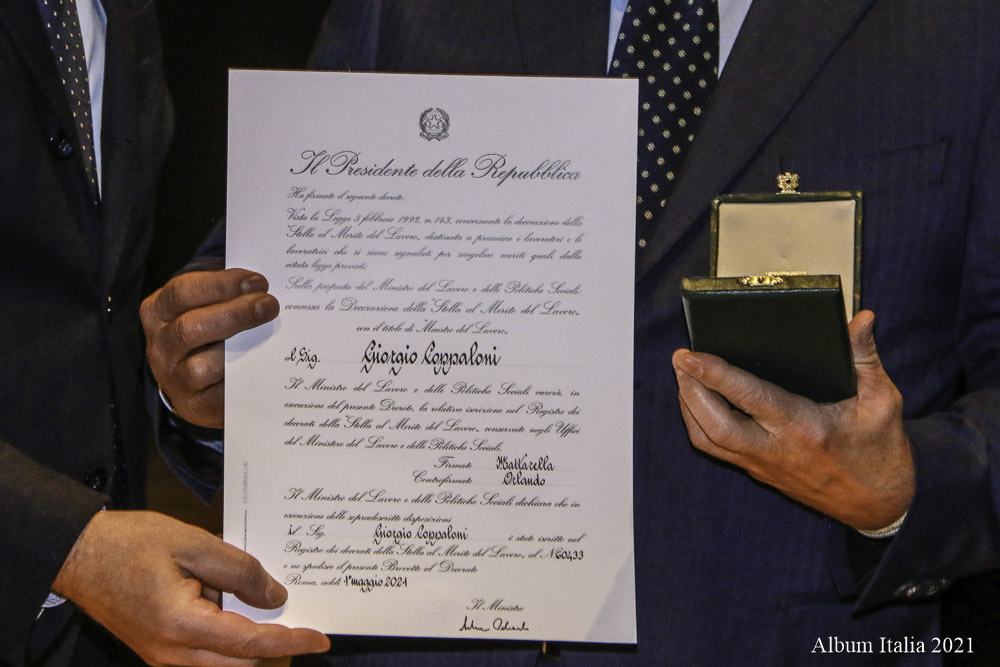 Il Presidente della Repubblica
Ha firmato il seguente decreto:
Vista la Legge 5 febbraio 1992, n. 143, concernente la decorazione della
"Stella al Merito del Lavoro" destinata a premiare i lavoratori e le
lavoratrici che si siano segnalati per singolari meriti quali dalla
citata legge previsti;
Sulla proposta del Ministro del Lavoro e delle Politiche Sociali:
concessa la Decorazione della Stella al Merito del Lavoro,
con il titolo di "Maestro del Lavoro,
al Sig. Giorgio Coppaloni
Il Ministro del Lavoro e delle Politiche Sociali curerà, in
esecuzione del presente Decreto, la relativa iscrizione nel Registro dei
decorati della "Stella al Merito del Lavoro, conservato negli Uffici
del Ministero del Lavoro e delle Politiche Sociali.
Firmato Mattarella
Controfirmato Orlando
Il Ministro del Lavoro e delle Politiche Sociali dichiara che in
esecuzione delle sopradescritte disposizioni
il Sig. Giorgio Coppaloni è stato iscritto nel
Registro dei decorati della Stella al Merito del Lavoro, al N° 60433
e ne spedisce il presente Brevetto al Decorato
Roma, addì 1° maggio 2021
Il Ministro
Album Italia 2021